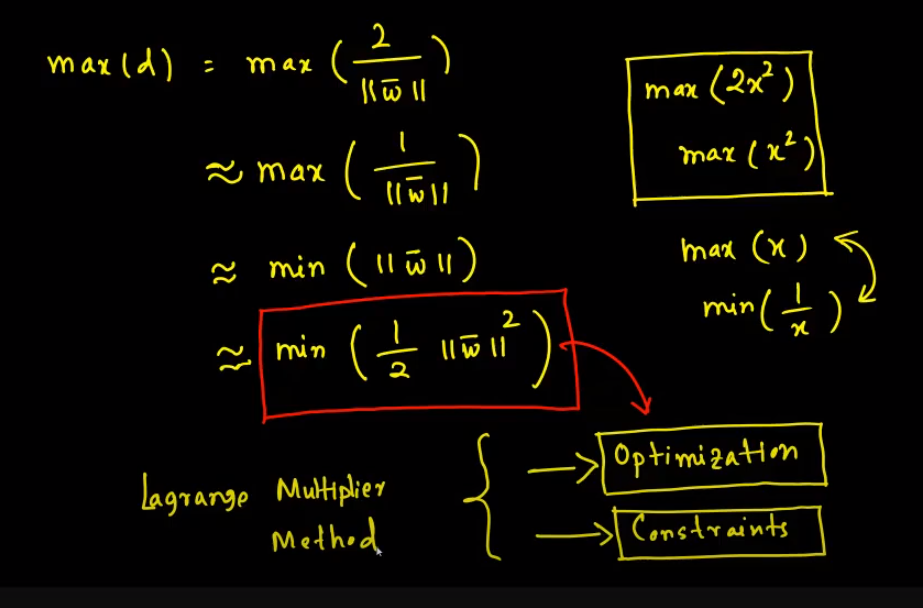 max(d) = max ( 2 / ||w̄|| )
≈ max ( 1 / ||w̄|| )
≈ min ( ||w̄|| )
≈ min ( 1/2 ||w̄||² )
max (2x²)
max (x²)
max (x)
min( 1/x )
Lagrange Multiplier
Method
Optimization
Constraints